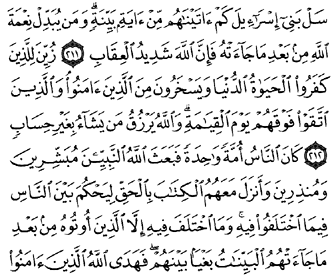 سَلْ بَنِىٓ إِسْرَٰٓءِيلَ كَمْ ءَاتَيْنَٰهُم مِّنْ ءَايَةٍۭ بَيِّنَةٍۗ وَمَن يُبَدِّلْ نِعْمَةَ
ٱللَّهِ مِنۢ بَعْدِ مَا جَآءَتْهُ فَإِنَّ ٱللَّهَ شَدِيدُ ٱلْعِقَابِ ٢١١ زُيِّنَ لِلَّذِينَ
كَفَرُوا۟ ٱلْحَيَوٰةُ ٱلدُّنْيَا وَيَسْخَرُونَ مِنَ ٱلَّذِينَ ءَامَنُوا۟ۘ وَٱلَّذِينَ
ٱتَّقَوْا۟ فَوْقَهُمْ يَوْمَ ٱلْقِيَٰمَةِۗ وَٱللَّهُ يَرْزُقُ مَن يَشَآءُ بِغَيْرِ حِسَابٍ
٢١٢ كَانَ ٱلنَّاسُ أُمَّةً وَٰحِدَةً فَبَعَثَ ٱللَّهُ ٱلنَّبِيِّـۧنَ مُبَشِّرِينَ
وَمُنذِرِينَ وَأَنزَلَ مَعَهُمُ ٱلْكِتَٰبَ بِٱلْحَقِّ لِيَحْكُمَ بَيْنَ ٱلنَّاسِ
فِيمَا ٱخْتَلَفُوا۟ فِيهِۚ وَمَا ٱخْتَلَفَ فِيهِ إِلَّا ٱلَّذِينَ أُوتُوهُ مِنۢ بَعْدِ
مَا جَآءَتْهُمُ ٱلْبَيِّنَٰتُ بَغْيًۢا بَيْنَهُمْۖ فَهَدَى ٱللَّهُ ٱلَّذِينَ ءَامَنُوا۟